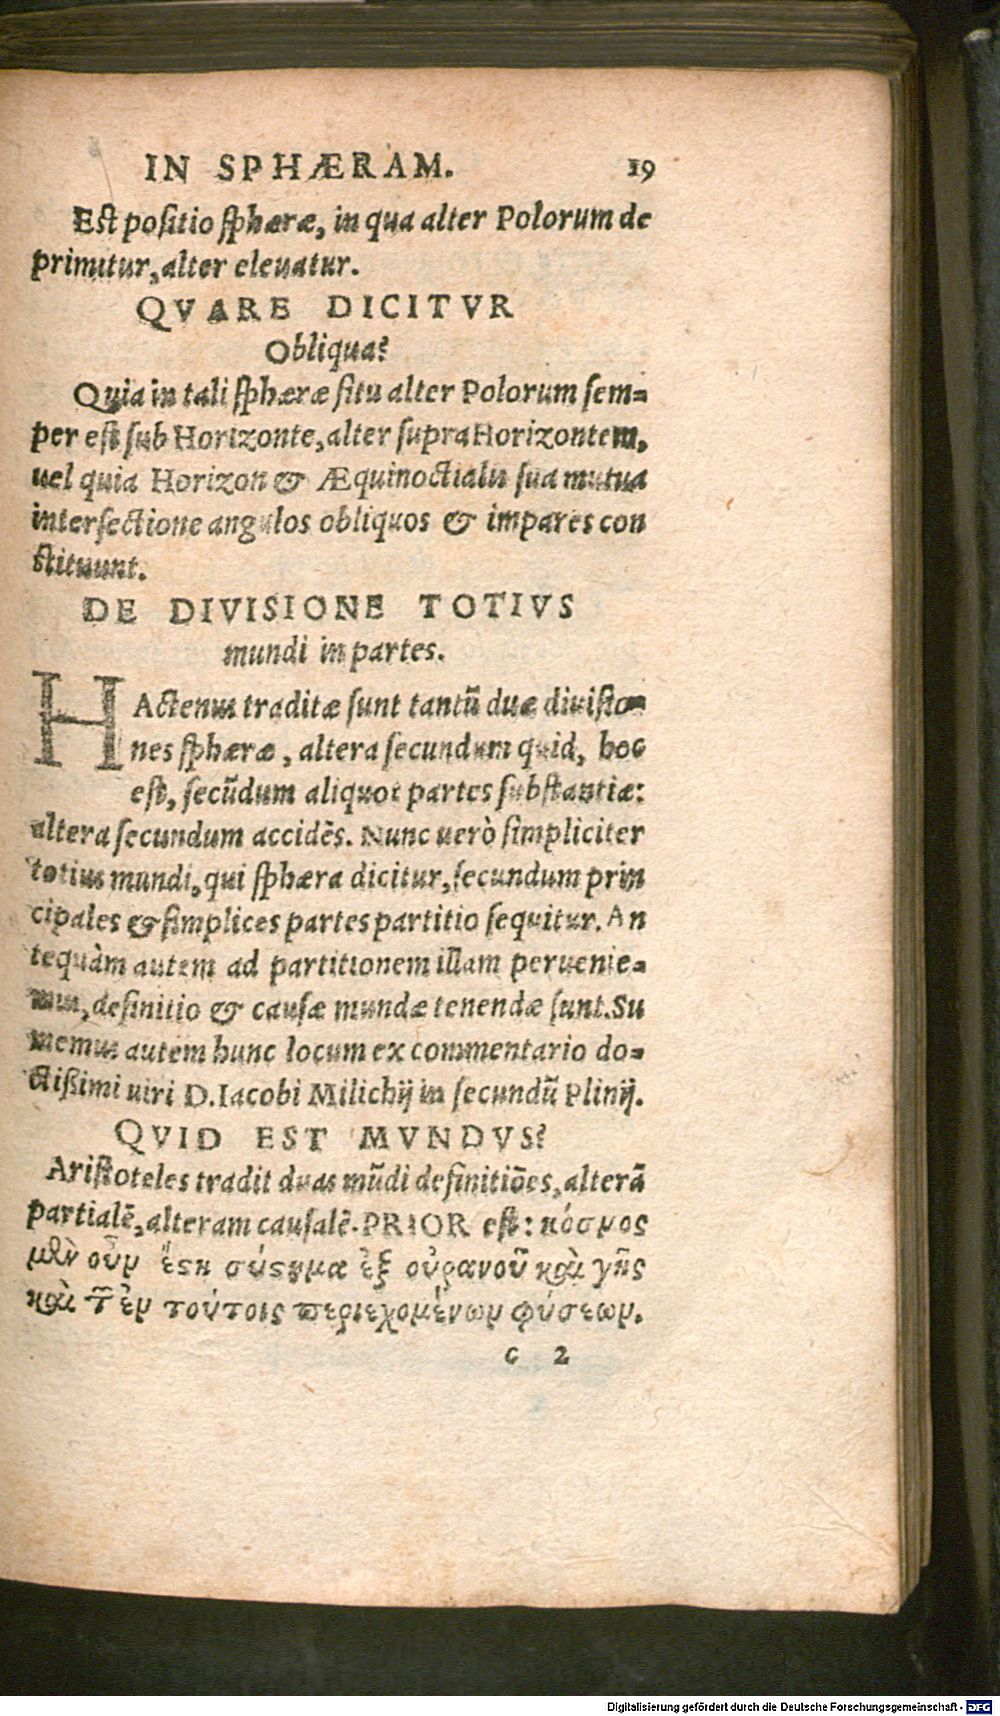 IN SPHÆRAM. 19
Est positio sphæræ, in qua alter Polorum de
primitur, alter eleuatur.
QVARE DICITVR
Obliqua?
Quia in tali sphæræ situ alter Polorum sem=
per est sub Horizonte, alter supra Horizontem,
uel quia Horizon & Æquinoctialis sua mutua
intersectione angulos obliquos & impares con
stituunt.
DE DIVISIONE TOTIVS
mundi in partes.
HActenus traditæ sunt tantũ duæ diuisio=
nes sphæræ, altera secundum quid, hoc
est, secũdum aliquot partes substantiæ:
altera secundum accidẽs. Nunc uerò simpliciter
totius mundi, qui sphæra dicitur, secundum prin
cipales & simplices partes partitio sequitur. An
tequàm autem ad partitionem illam peruenie=
mus, definitio & causæ mundæ tenendæ sunt. Su
memus autem hunc locum ex commentario do=
ctißimi uiri D. Iacobi Milichij in secundũ Plinij.
QVID EST MVNDVS?
Aristoteles tradit duas mũdi definitiões, alterã
partialẽ, alteram causalẽ. PRIOR est: κόσμος
μὲν οὖν ἔστι σύστημα ἐξ οὐρανοῦ καὶ γῆς
καὶ τῶν ἐν τούτοις περιεχομένων φύσεων.
c 2
Digitalisierung gefördert durch die Deutsche Forschungsgemeinschaft - DFG